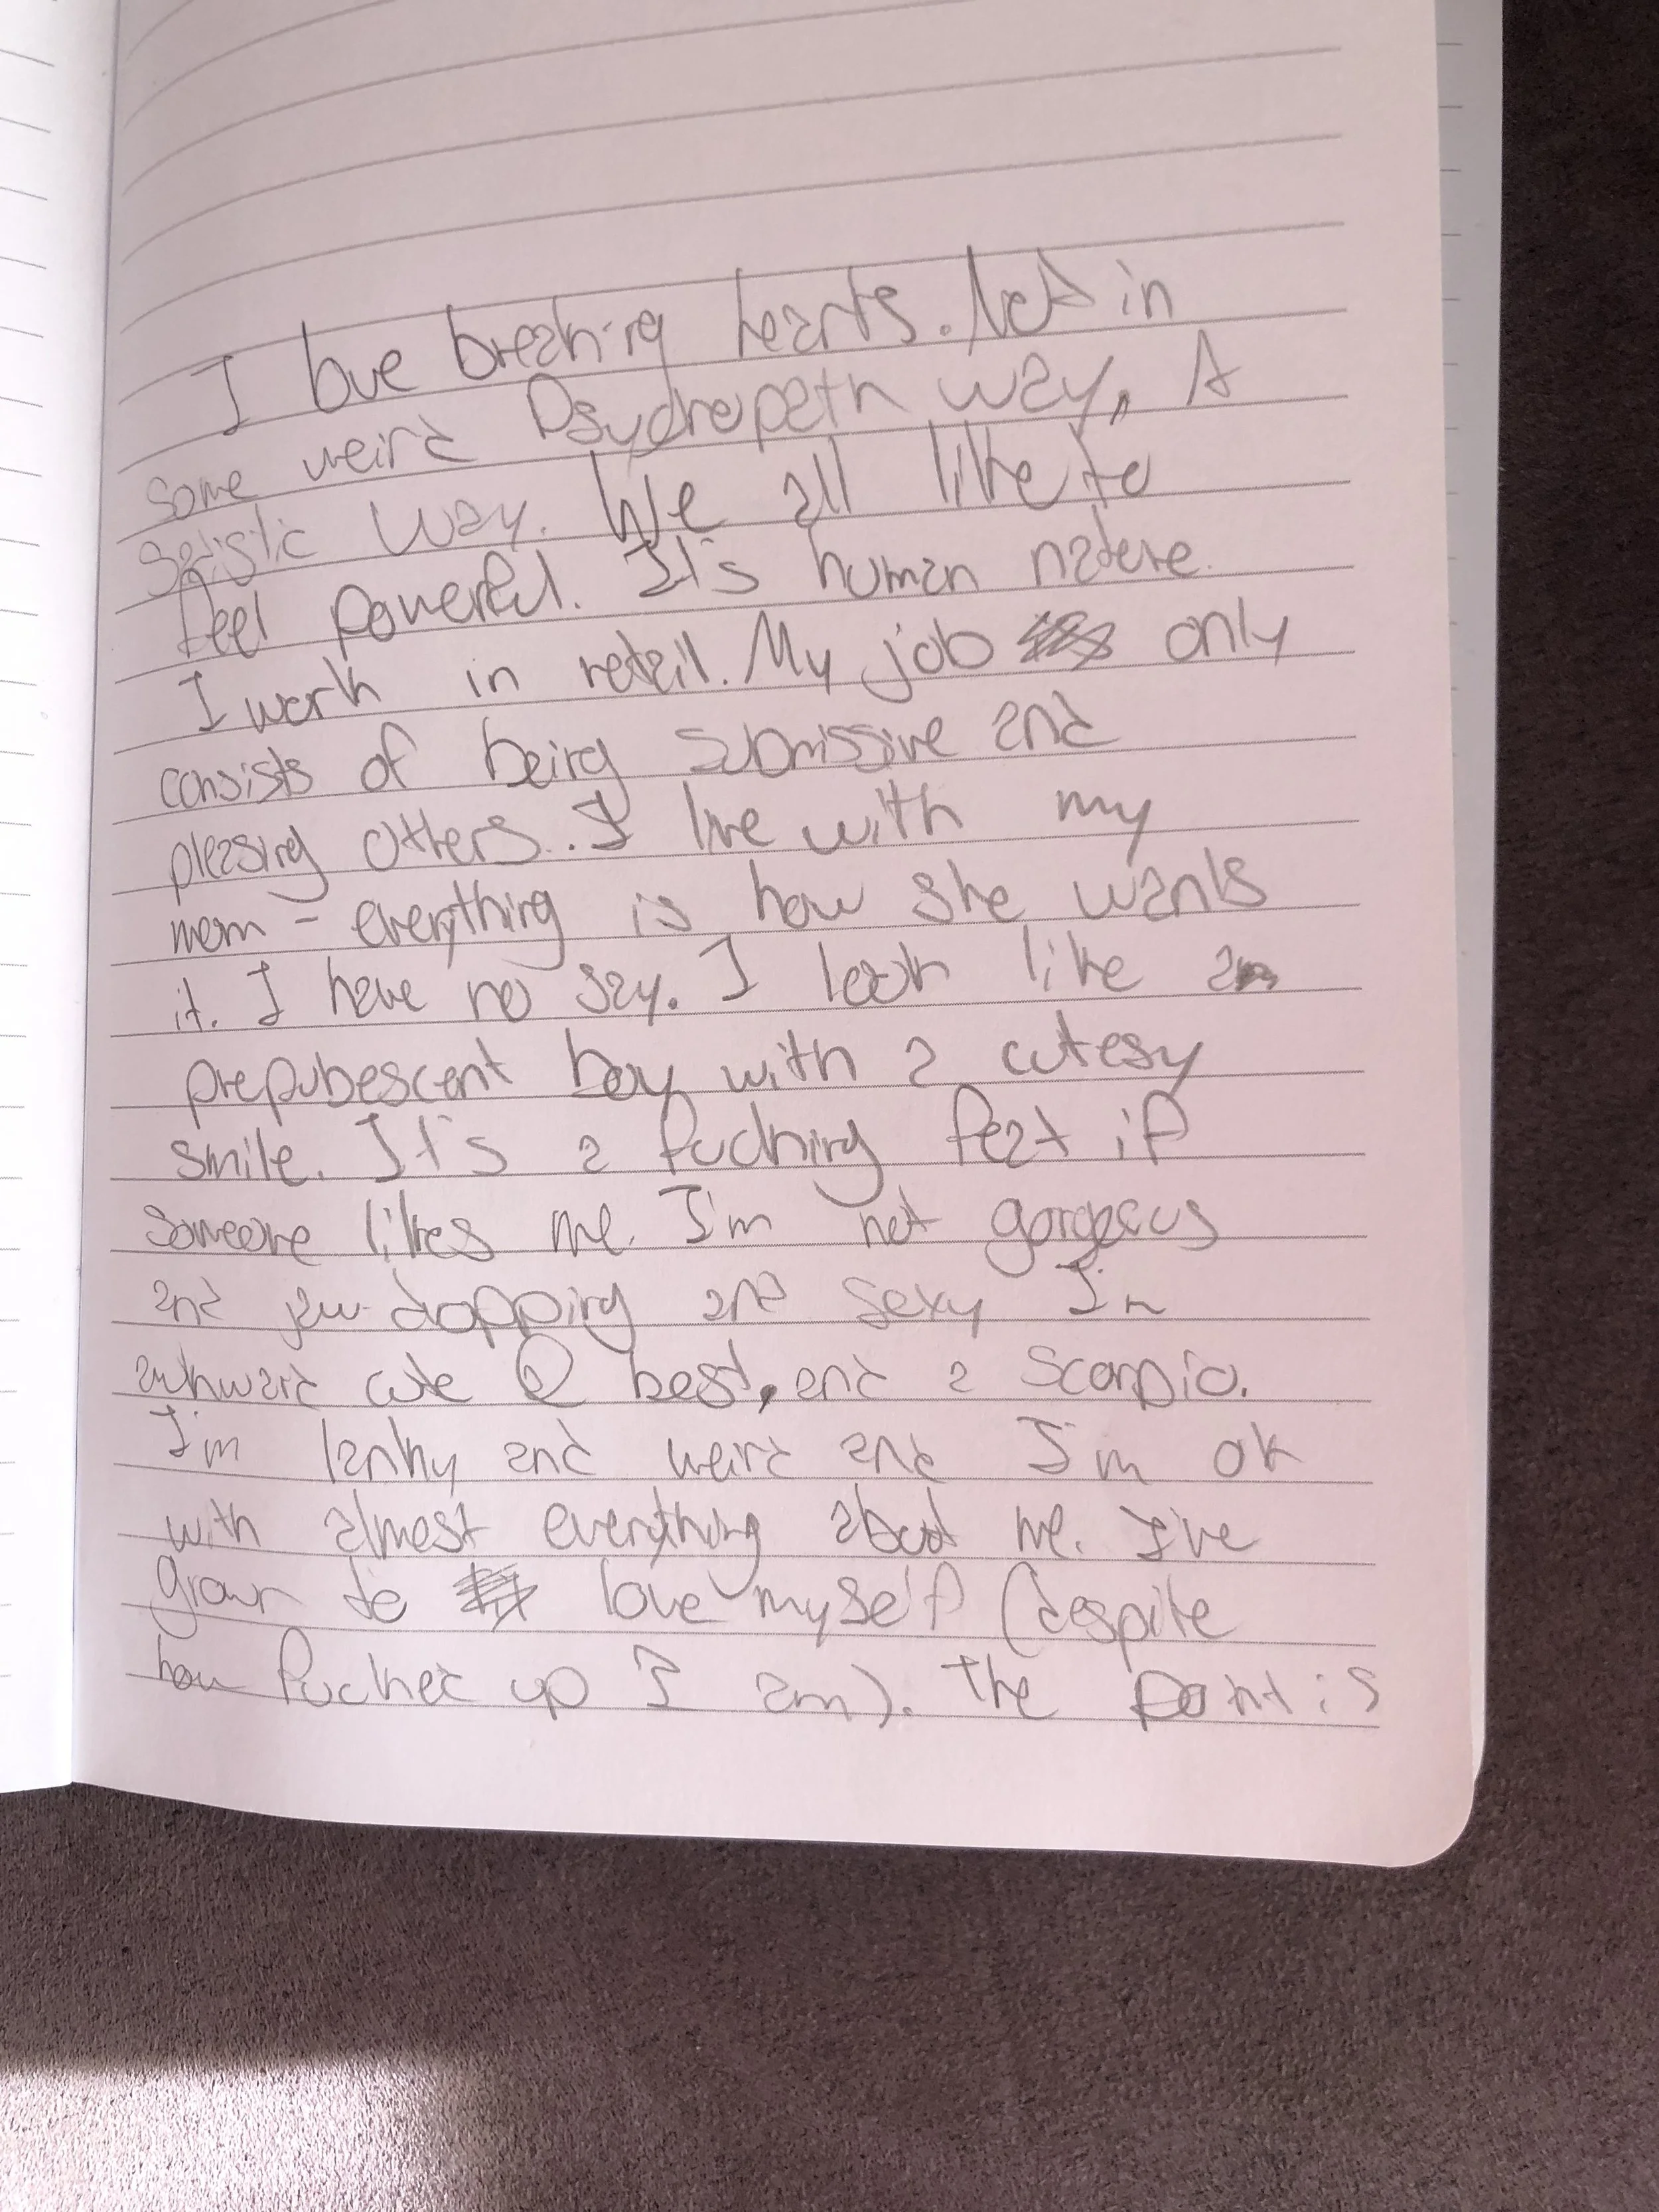 I love breaking hearts. Not in
some weird Psychopath way, A
sadistic way. We all like to
feel powerful. It's human nature.
I work in retail. My job only
consists of being submissive and
pleasing others. I live with my
mom - everything is how she wants
it. I have no say. I look like a
prepubescent boy with a cutesy
smile. It's a fucking feat if
someone likes me. I'm not gorgeous
and jaw-dropping and sexy I'm
awkward cute @ best, and a Scorpio.
I'm lanky and weird and I'm ok
with almost everything about me. I've
grown to love myself (despite
how fucked up I am). The point is